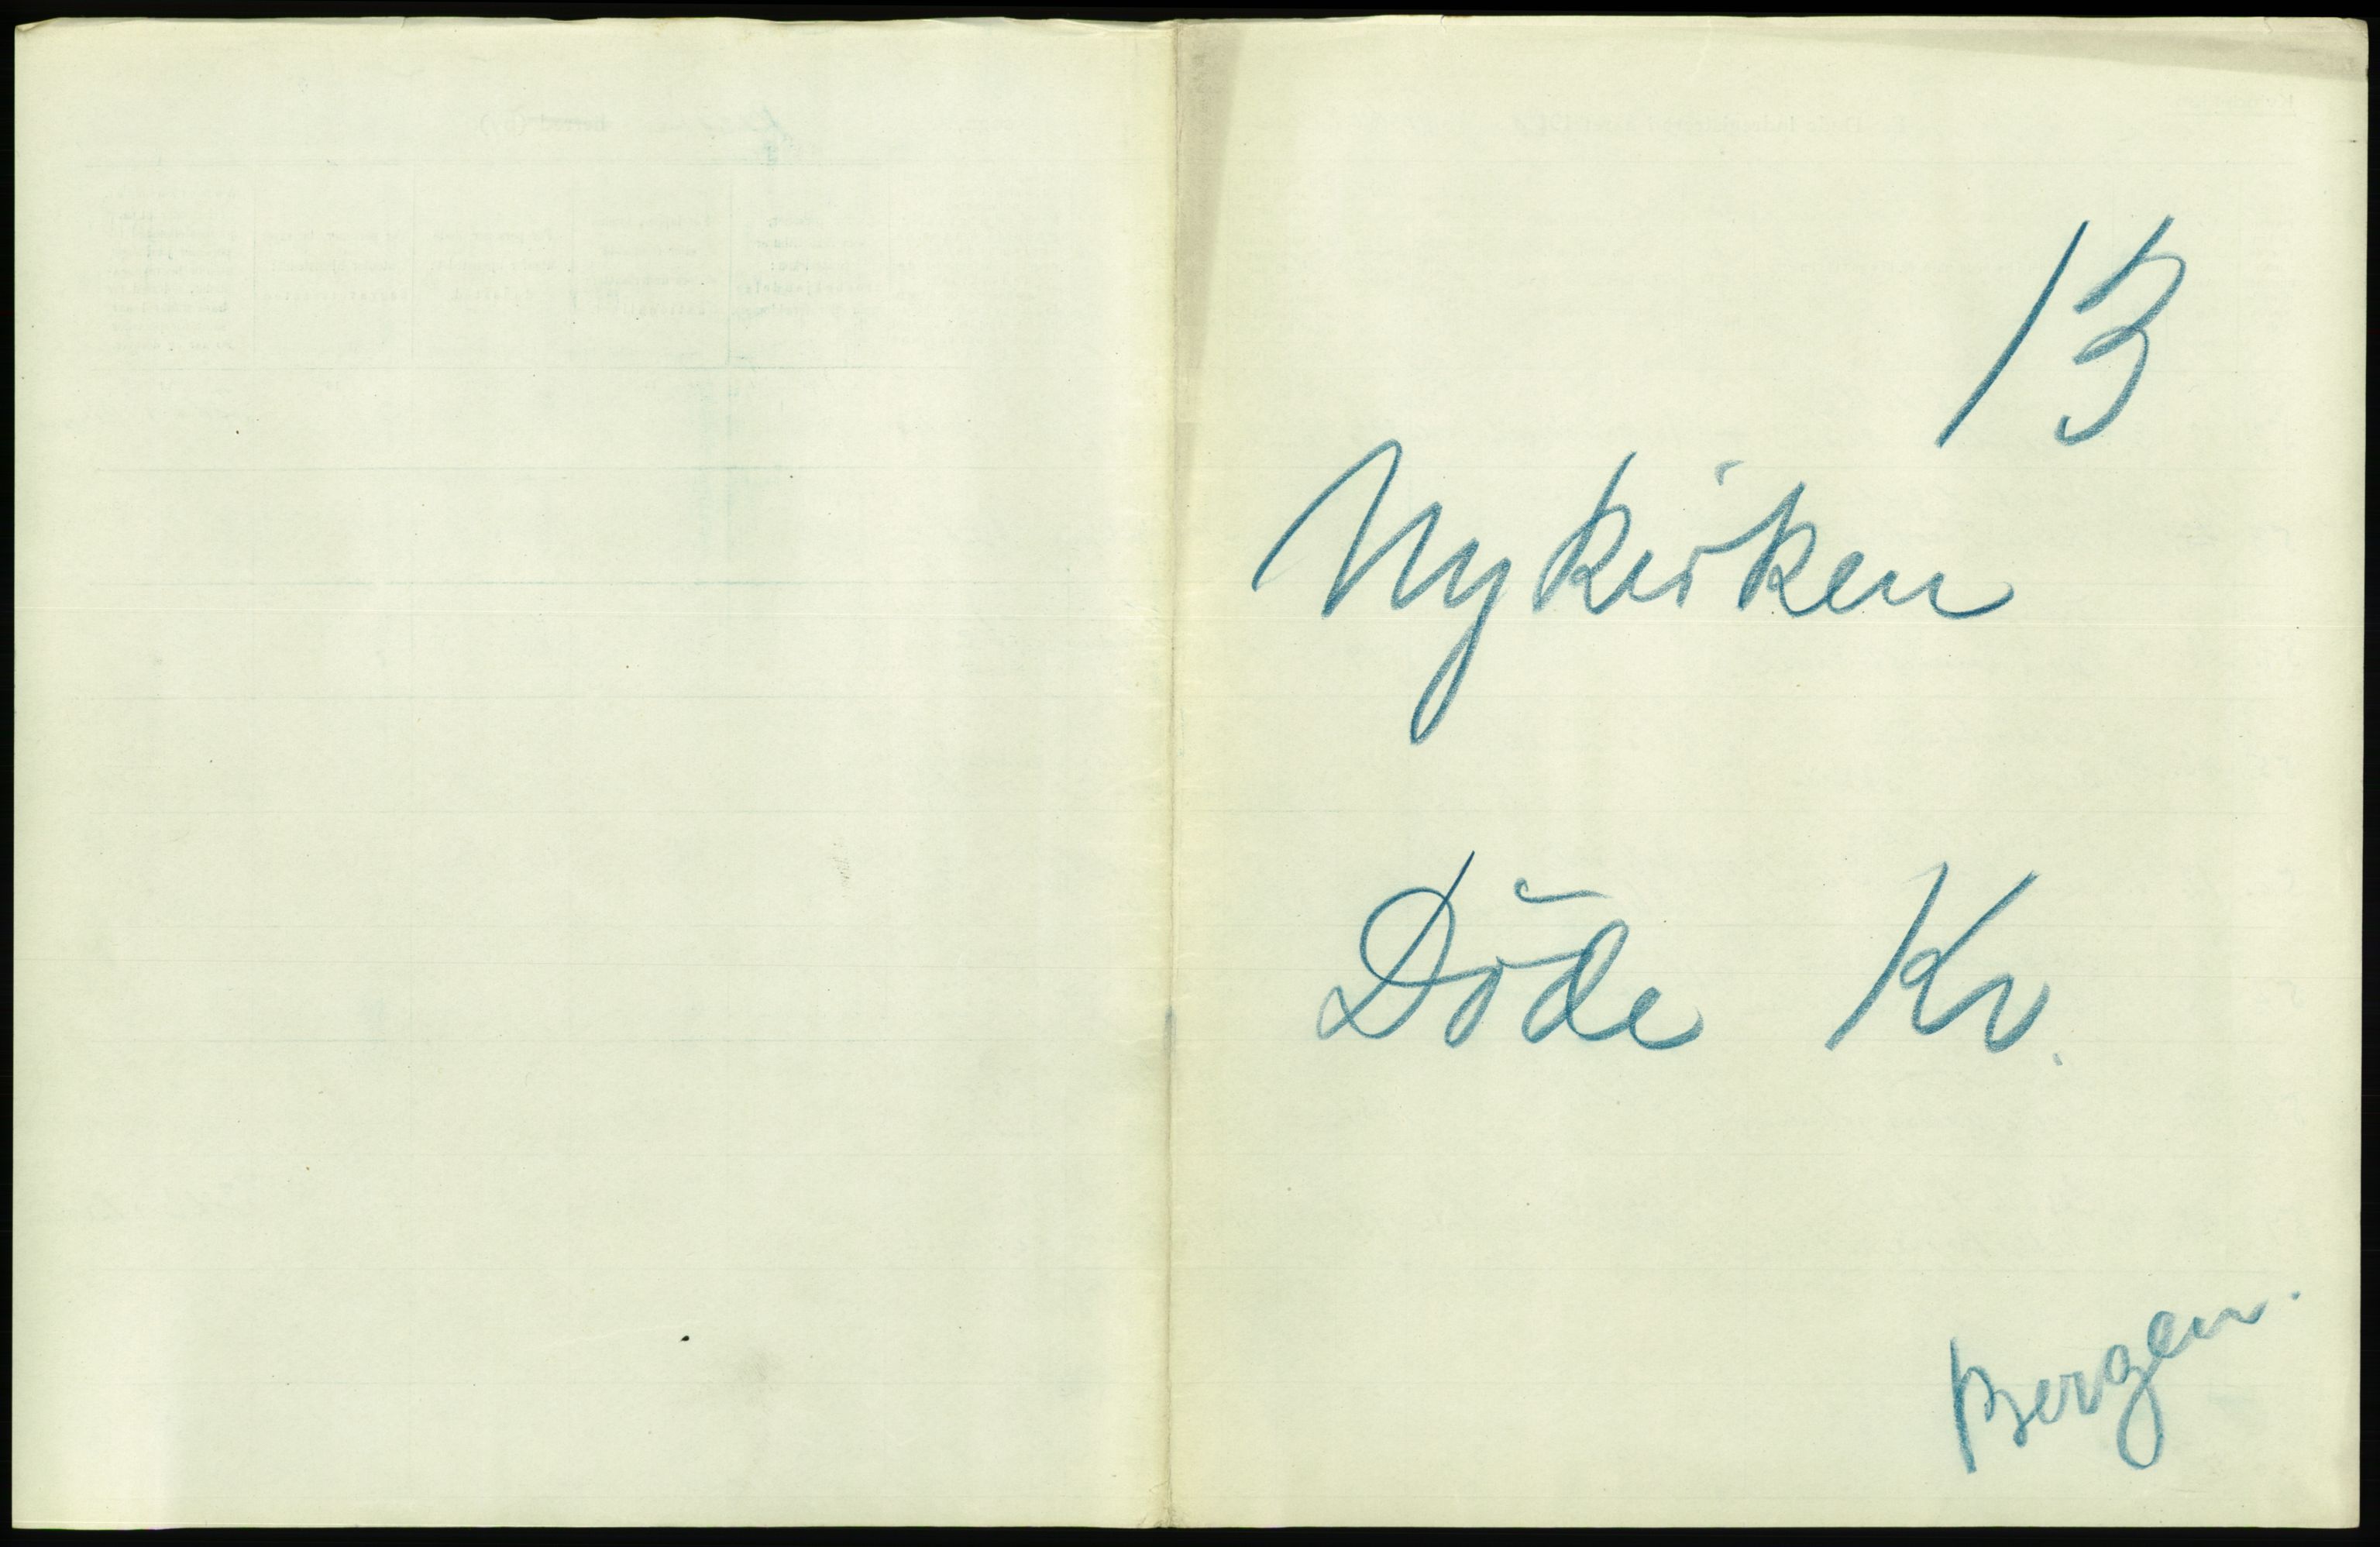 13
Nykirken
Döde Kv.
Bergen.